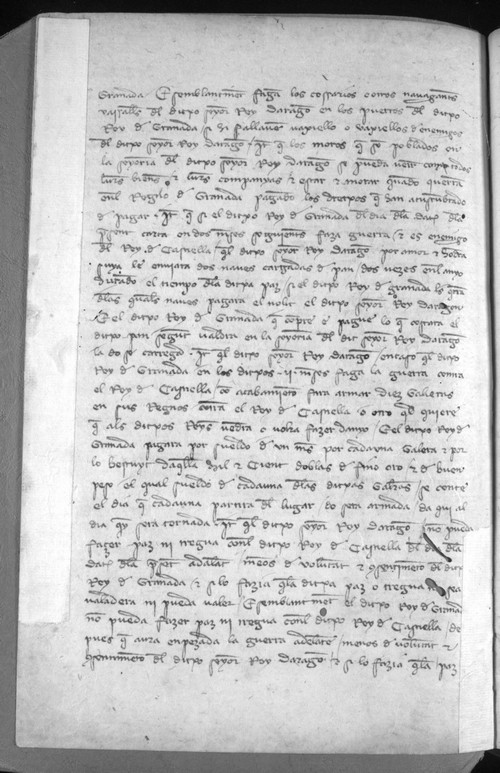 Granada. E semblantment fagan los cossarios e otros navegants
vassallos del dicho senyor Rey Darago en los puertos del dicho
Rey de Granada si hi fallaven vaxiello o vaxiellos denemigos
del dicho senyor Rey Darago. Item que los moros que son poblados en
la senyoria del dicho senyor Rey Darago se puedan venir con todos
lurs bienes & lurs companyas & estar & morar quando querran
en el Regno de Granada pagando los dreytos que han acustumbrado
de pagar. Item que si el dicho Rey de Granada del dia dela data dela
present carta en dos meses seguients faza guerra & es enemigo
del Rey de Castiella quel dicho senyor Rey Darago por amor & honra
suya le enviara dos naves cargadas de pan dos vezes en lanyo
durando el tiempo dela dicha paz si el dicho Rey de Granada lo querra
delas quals naves pagara el nolit el dicho senyor Rey Darago
E el dicho Rey de Granada que compre e pague lo que costara el
dicho pan segunt valdra en la senyoria del dit senyor Rey Darago
la do se cargego. Item quel dicho senyor Rey Darago en caso quel dicho
Rey de Granada en los dichos .ii. meses faga la guerra contra
el Rey de Castiella con acabamiento fara armar diez Galeras
en sus Regnos contra el Rey de Castiella o otro qual quiere
que als dichos Reys vendra o volra fazer danyo. E el dicho Rey de
Granada pagara por sueldo de un mes por cadauna Galera & por
lo bescuyt daquella Mil & Cient doblas de fino oro & de buen
peso el qual sueldo de cadauna delas dichas Galeras se conte
el dia que cadauna partira del lugar do sera armada daqui al
dia que sera tornada. Item quel dicho senyor Rey Darago no pueda
fazer paz ni tregua conel dicho Rey de Castiella del dia dela
data dela present adelant menos de voluntat & consentimento del dicho
Rey de Granada & si lo fazia quela dicha paz o tregua no sea
valedera ni pueda valer. E semblant ment el dicho Rey de Granada
no pueda fazer paz ni tregua conel dicho Rey de Castiella, de
pues que aura enpezada la guerra adelante, menos de voluntat &
consentimento del dicho senyor Rey Darago & si lo fazia quela paz